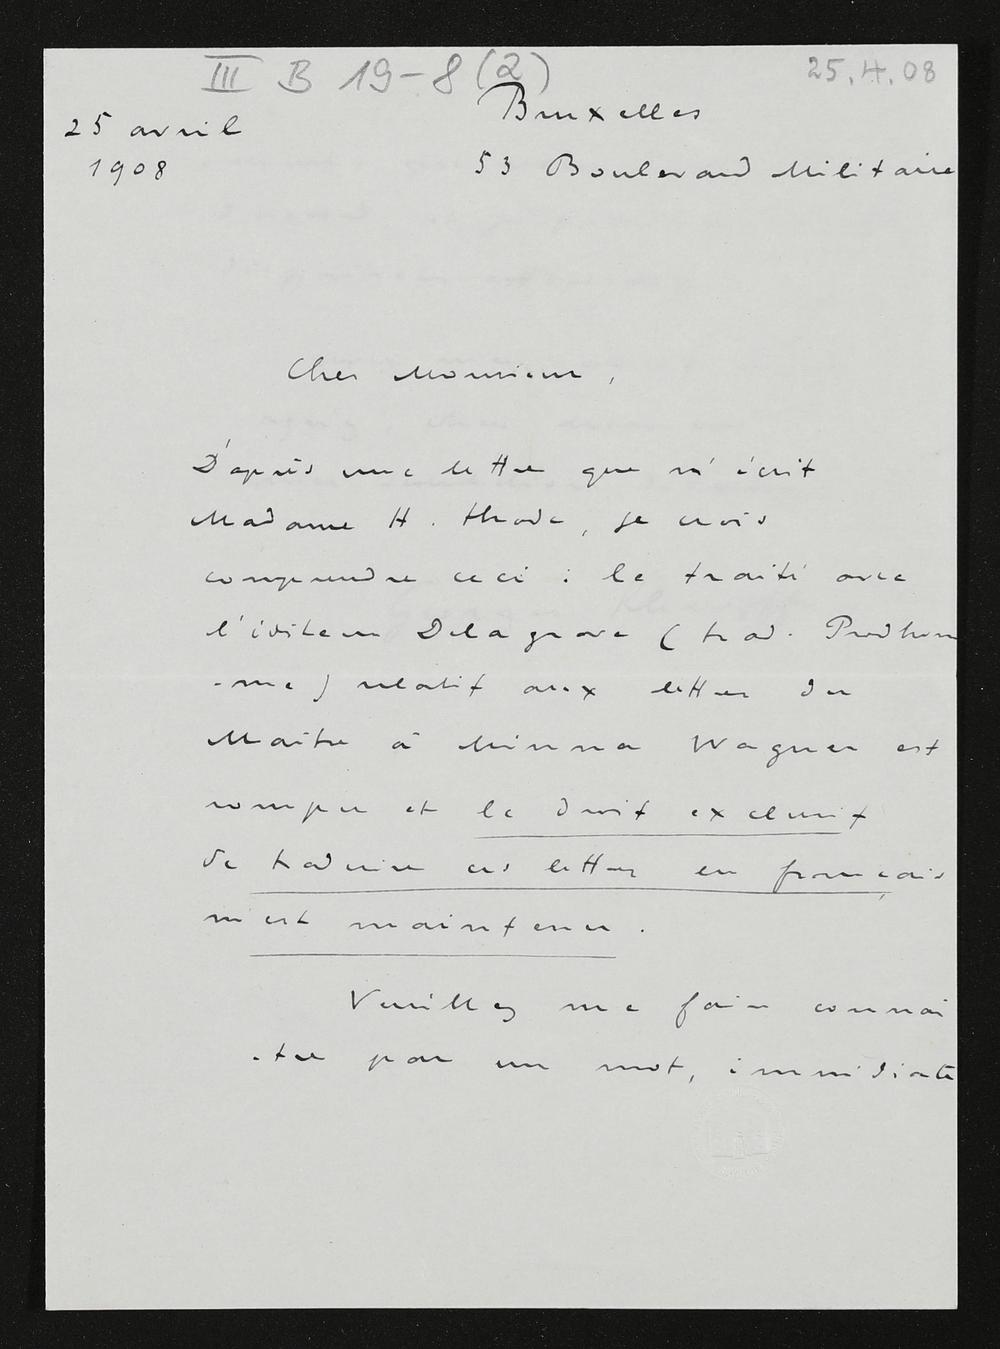 III B 19-8 (2)
25.4.08
25 avril
1908
Bruxelles
53 Boulevard Militaire
Cher Monsieur,
D'après une lettre que m'écrit
Madame H. Thode, je crois
comprendre ceci : le traité avec
l'éditeur Delagrave (trad. Prodhom
-me) relatif aux lettres du
Maître à Minna Wagner est
rompu et le droit exclusif
de traduire ces lettres en français
m'est maintenu.
Veuillez me faire connaî
-tre par un mot, immédiate